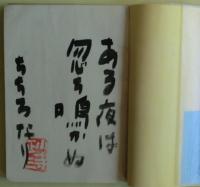 ある夜は
忽ち鳴かぬ
日
ちちろなり